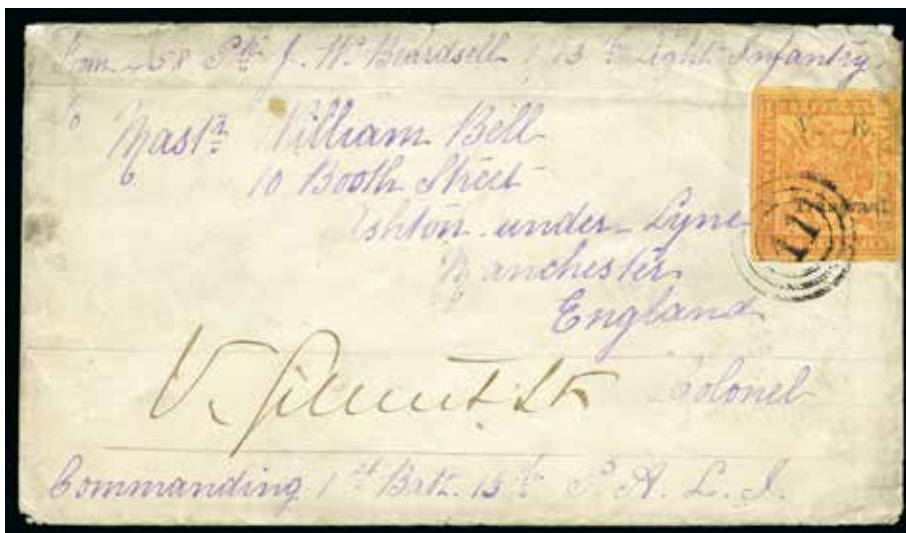 From 458 Pte. J. Wm. Beardsell 13th Light Infantry.
V. R.
Transvaal
117
Mastr. William Bell
10 Booth Street
Ashton-under-Lyne
Manchester
England
Colonel
Commanding 1st Batt. 13th P. A. L. I.